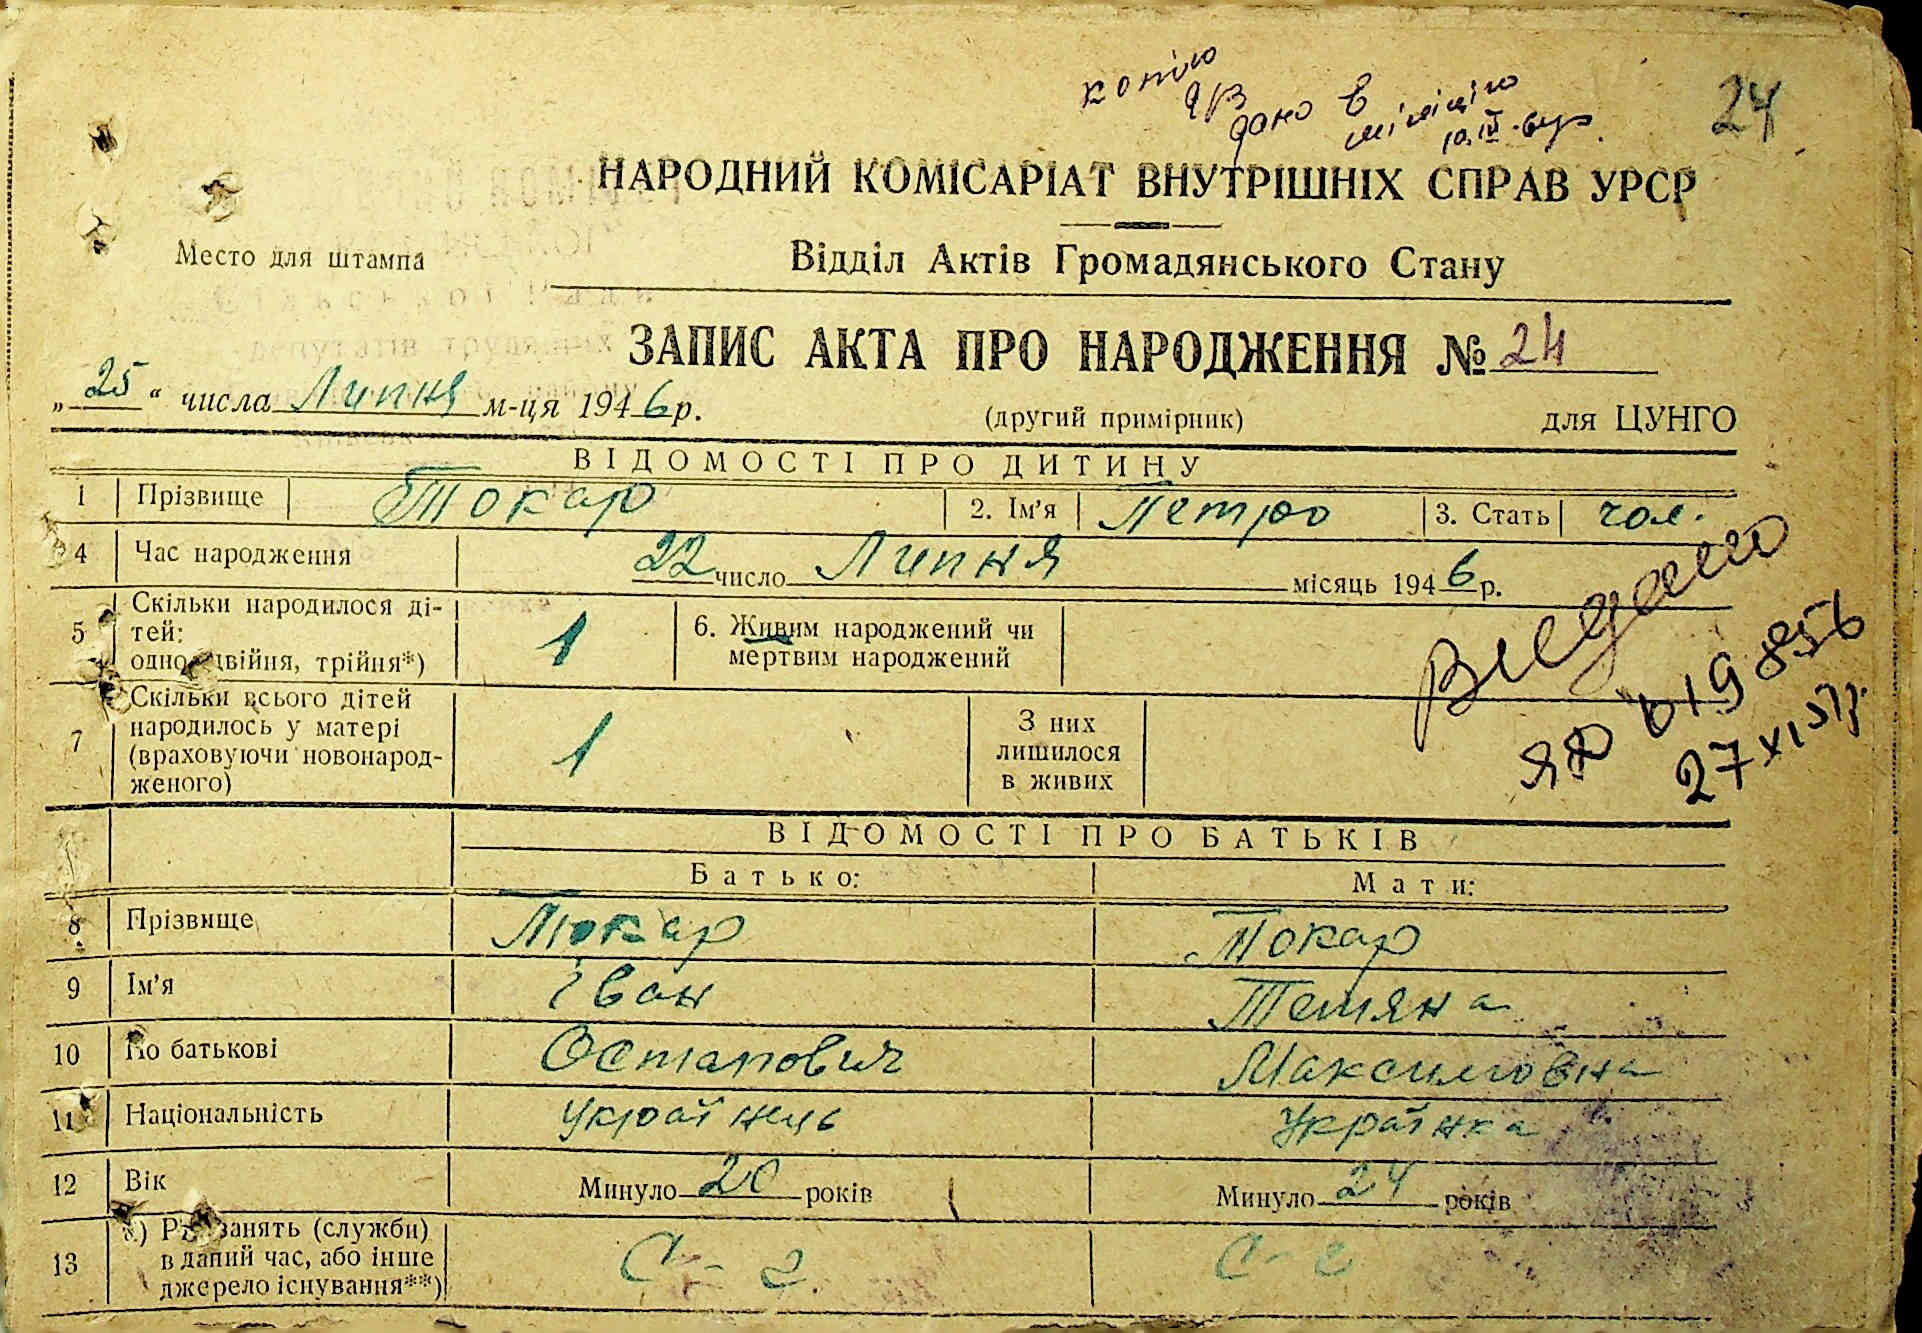 копію
дано в
міліцію
24
НАРОДНИЙ КОМІСАРІАТ ВНУТРІШНІХ СПРАВ УРСР
Место для штампа
Відділ Актів Громадянського Стану
ЗАПИС АКТА ПРО НАРОДЖЕННЯ № 24
„ 25 “ числа Липня м-ця 1946 р.
(другий примірник)
для ЦУНГО
ВІДОМОСТІ ПРО ДИТИНУ
1 Прізвище Токар 2. Ім'я Петро 3. Стать чол.
4 Час народження 22 число Липня місяць 1946 р.
5 Скільки народилося ді-
тей:
одно, двійня, трійня*)
1
6. Живим народжений чи
мертвим народжений
7 Скільки всього дітей
народилось у матері
(враховуючи новонарод-
женого)
1
З них
лишилося
в живих
Видано
ЯЮ 019856
27 XI 57р.
ВІДОМОСТІ ПРО БАТЬКІВ
Батько: Мати:
8 Прізвище Токар Токар
9 Ім'я Іван Тетяна
10 По батькові Остапович Максимовна
11 Національність Українець Українка
12 Вік Минуло 20 років Минуло 24 років
13 Рід занять (служби)
в даний час, або інше
джерело існування**)
С-г С-г